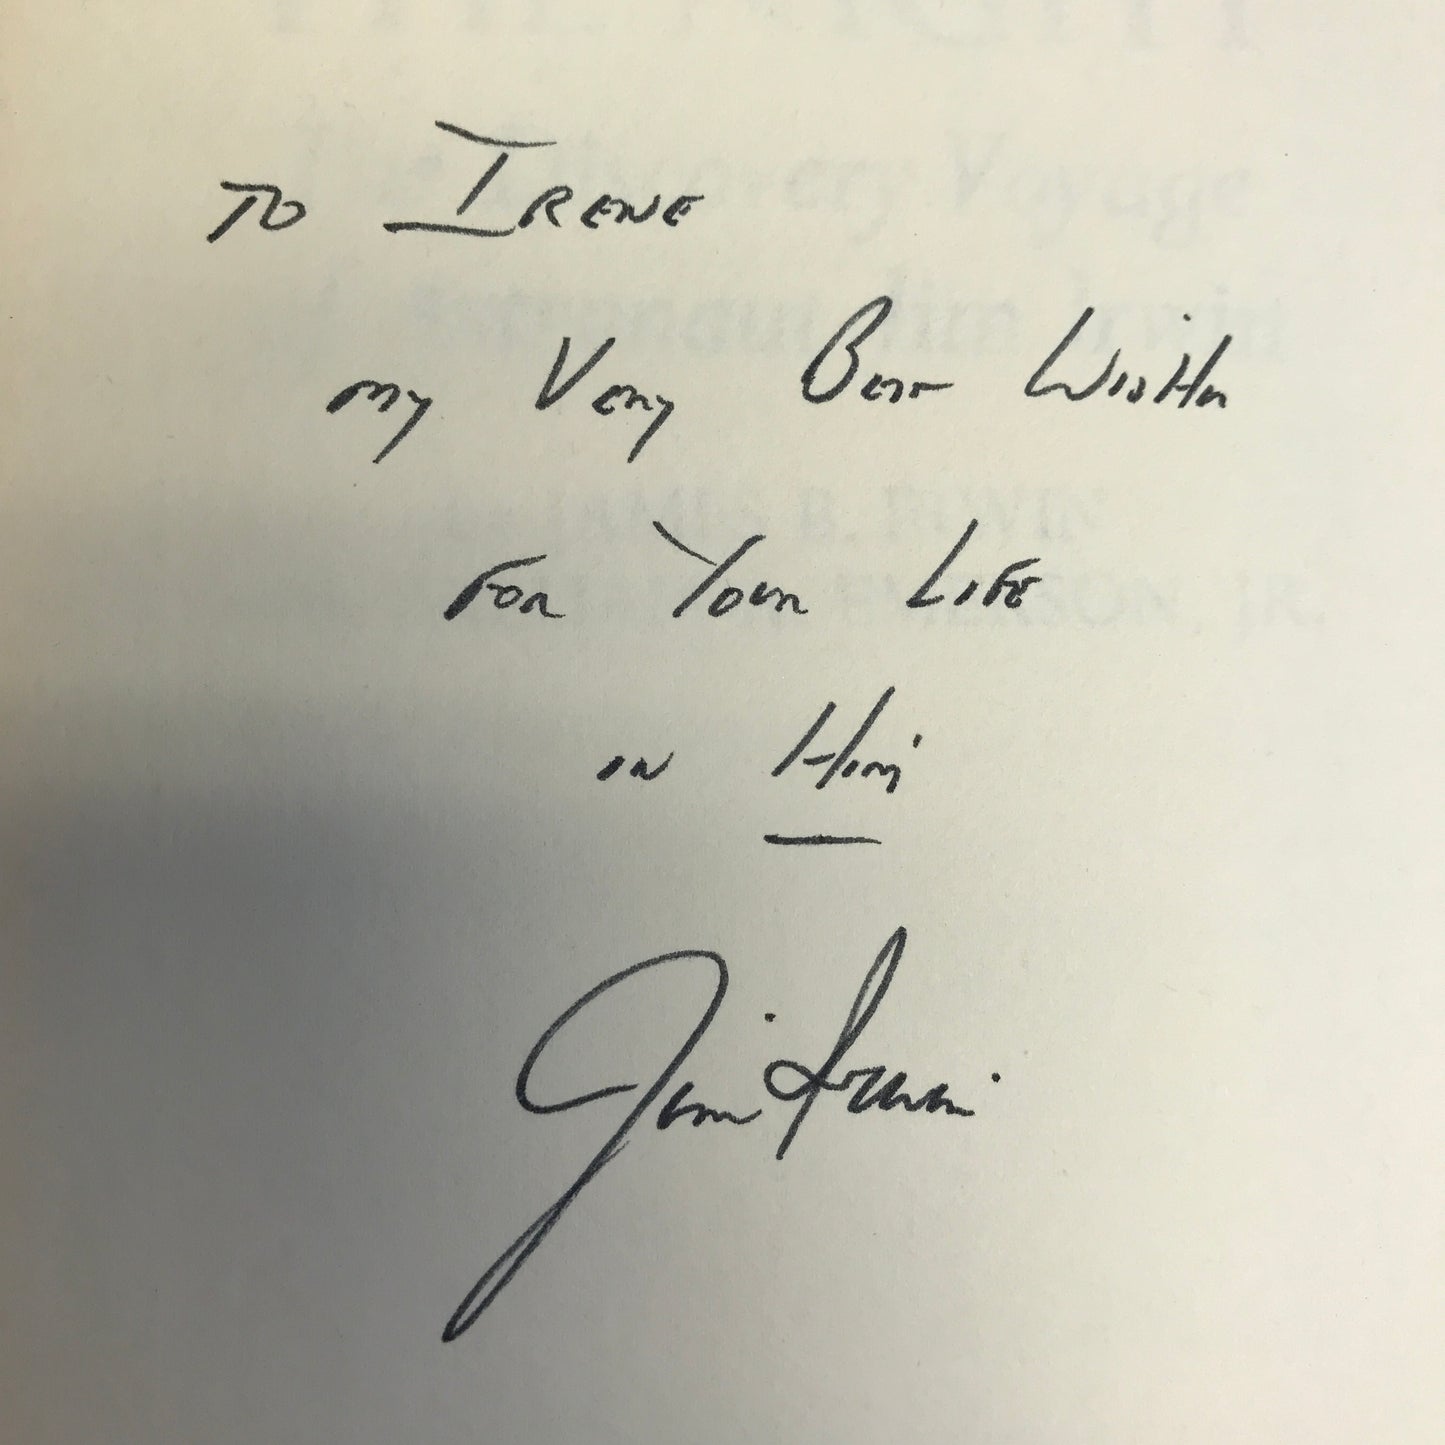 TO IRENE
my Very Best Wishes
For Your Life
in Him
Jim Irwin
THE NIGHT
The Discovery Voyage
of Astronaut Jim Irwin
by JAMES B. IRWIN
EMERSON, JR.